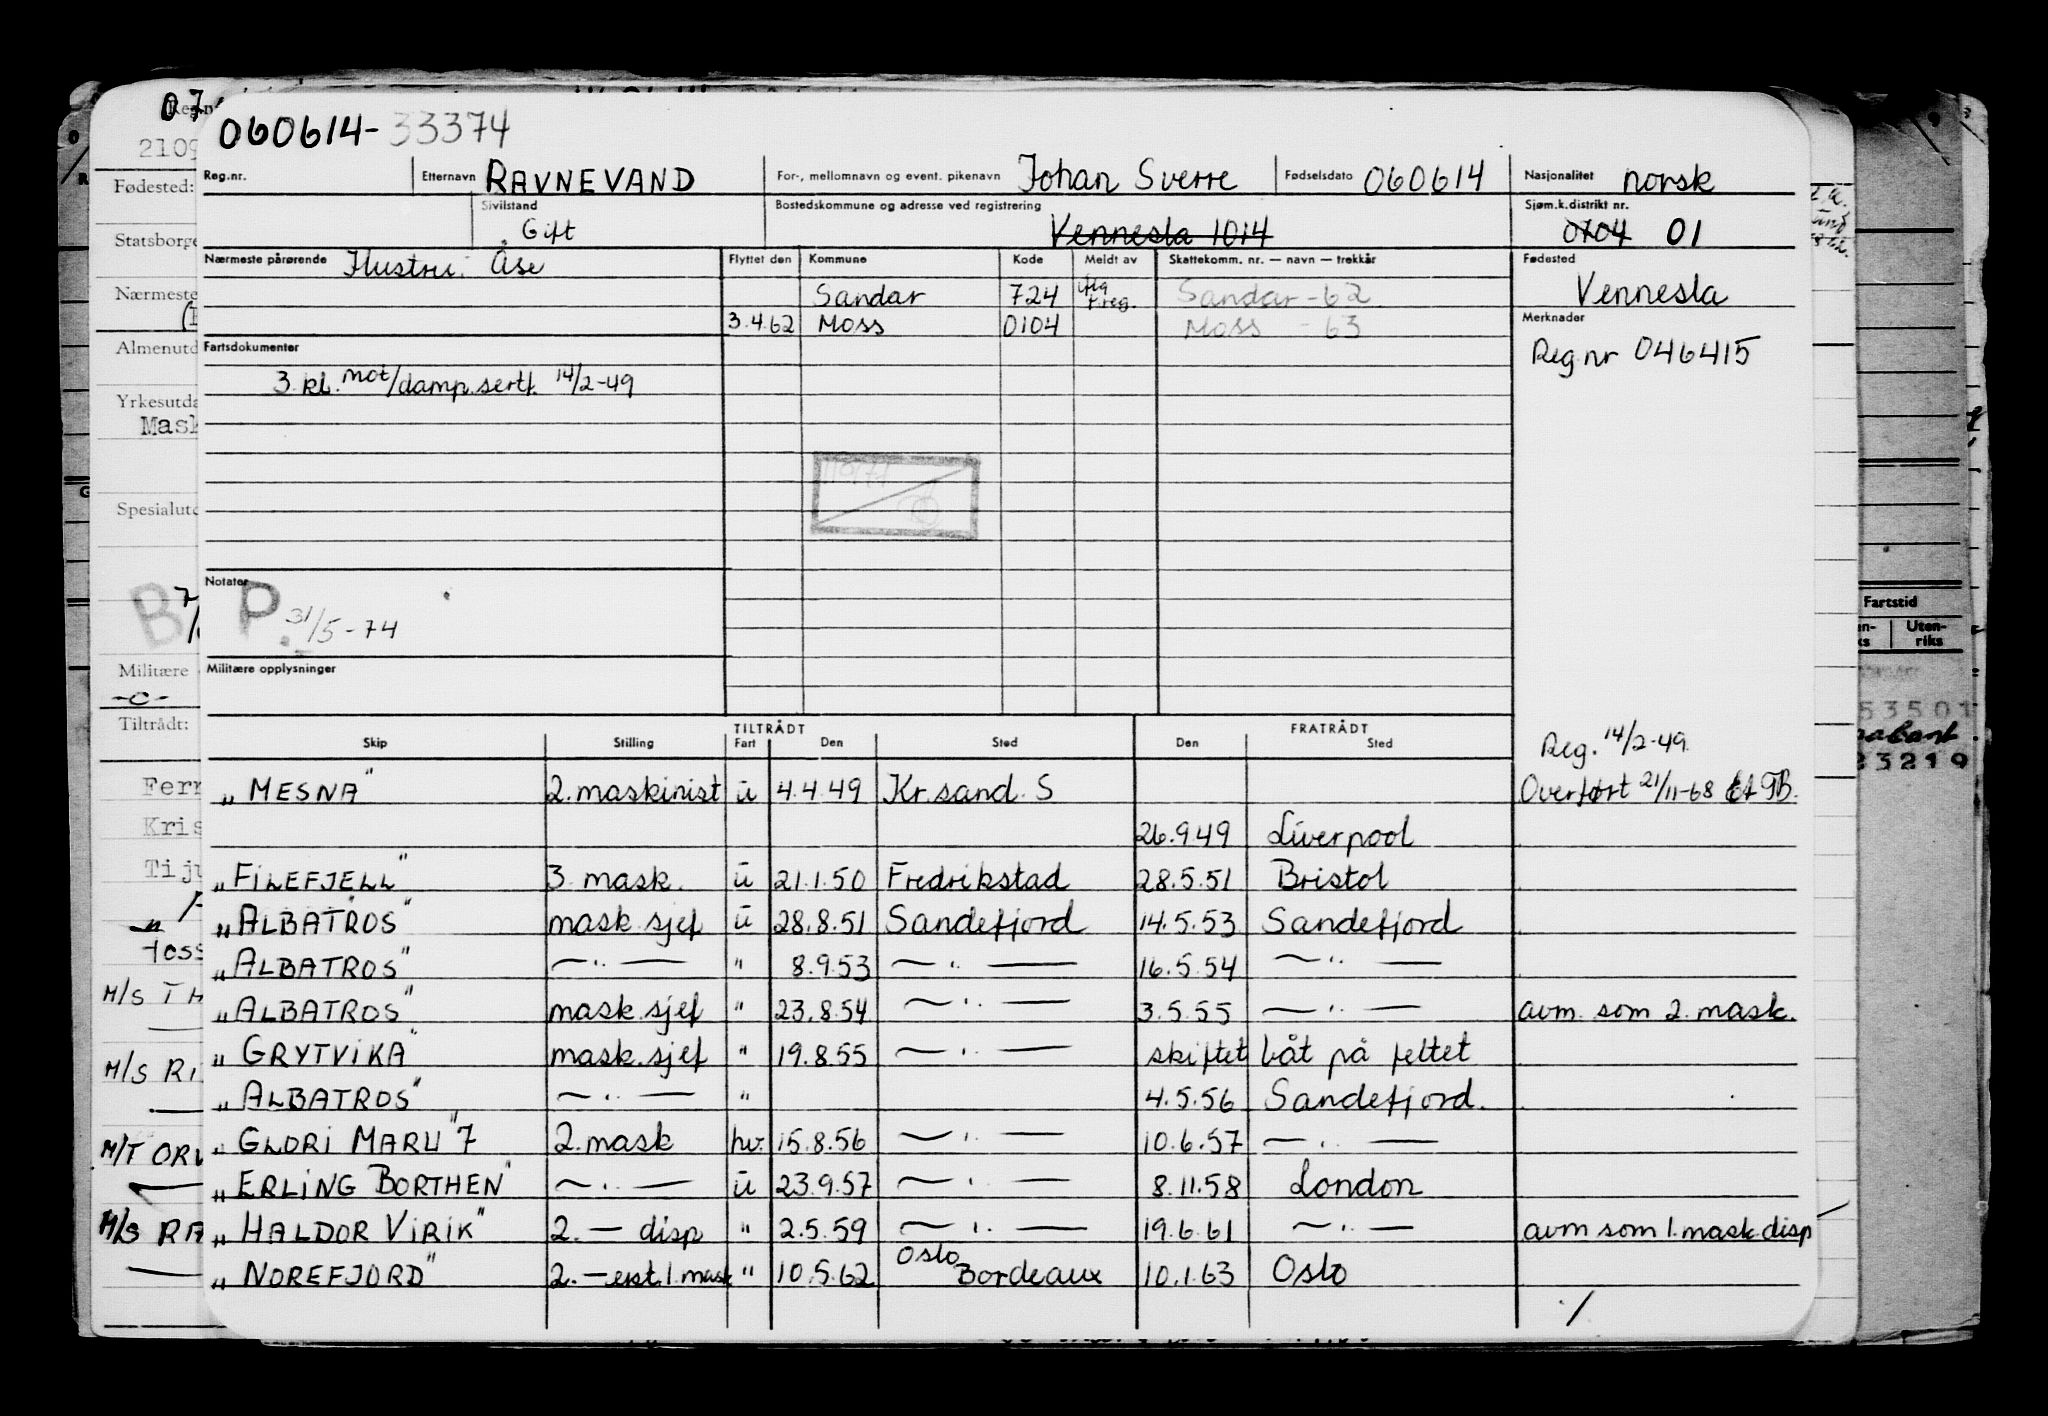 060614-33374
Reg.nr. Etternavn RAVNEVAND For-, mellomnavn og event. pikenavn Johan Sverre Fødselsdato 060614 Nasjonalitet norsk
Sivilstand Gift Bostedskommune og adresse ved registrering Vennesla 1014 Sjøm.k.distrikt nr. 0704 01
Nærmeste pårørende Hustru: Åse Flyttet den Kommune Kode Meldt av Skattekomm. nr. — navn — trekkår Fødested
Sandar 724 Sandar - 62 Vennesla
3.4.62 Moss 0104 Moss - 63 Merknader
Fartsdokumenter Reg.nr 046415
3. kl. mot/damp.sertf. 14/2-49
Notater
P. 31/5-74
Militære opplysninger
TILTRÅDT FRATRÅDT
Skip Stilling Fart Den Sted Den Sted Reg. 14/2-49.
„MESNA" 2. maskinist u 4.4.49 Kr.sand. S Overført 21/11-68
26.9.49 Liverpool
„FILEFJELL" 3. mask. u 21.1.50 Fredrikstad 28.5.51 Bristol
„ALBATROS" mask.sjef u 28.8.51 Sandefjord 14.5.53 Sandefjord
„ALBATROS" —"— " 8.9.53 —"— 16.5.54 —"—
„ALBATROS" mask.sjef " 23.8.54 —"— 3.5.55 —"— avm. som 2. mask.
„GRYTVIKA" mask.sjef " 19.8.55 —"— skiftet båt på feltet
„ALBATROS" —"— " 4.5.56 Sandefjord.
„GLORI MARU" 7 2. mask hv. 15.8.56 —"— 10.6.57 —"—
„ERLING BORTHEN" —"— u 23.9.57 —"— 8.11.58 London
„HALDOR VIRIK" 2. — disp " 2.5.59 —"— 19.6.61 —"— avm som 1. mask.disp
„NOREFJORD" 2. — erst. 1. mask " 10.5.62 Oslo Bordeaux 10.1.63 Oslo
07
Reg.n
2109
Fødested:
Statsborge
Nærmeste
Almenutd
Yrkesutda
Mask
Spesialutd
B
Militære
-o-
Tiltrådt:
Ferr
Kris
Tiju
Foss
M/S TH
M/S RI
M/T ORV
M/S RA
Fartstid
Uten-
riks
53501
23219